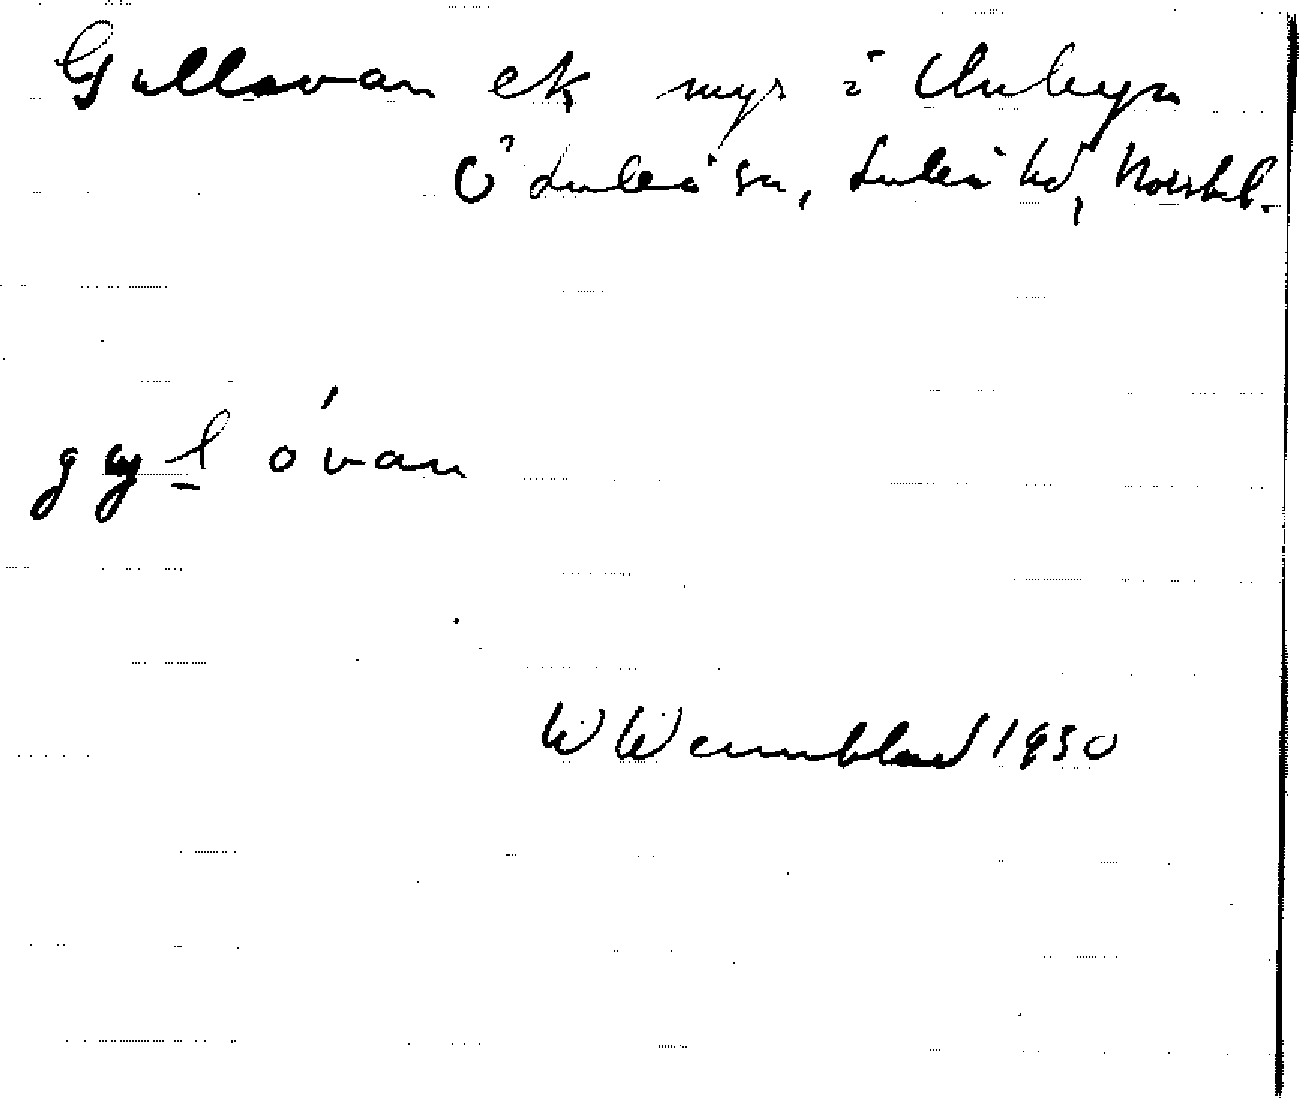 Gullovan ek myr i Unbyn
Ö Luleå sn, Luleå hd, Norrb l.
gy̨l óvan
W Wennblad 1930